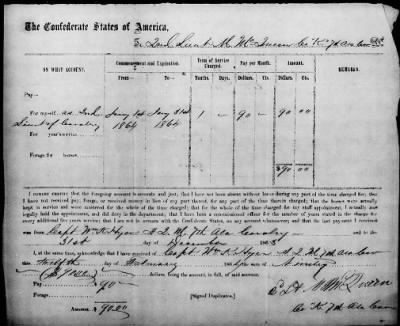 The Confederate States of America,
To 2nd Lieut. M. Mc Queen Co "K" 7th Ala Cav Dr.
ON WHAT ACCOUNT.
Commencement and Expiration.
Term of Service Charged.
Pay per Month.
Amount.
REMARKS.
From—
To—
Months.
Days.
Dollars.
Cts.
Dollars.
Cts.
Pay—
For myself, as 2nd Jany 1st Jany 31st 1 — 90 — 90 00
Lieut of Cavalry 1864 1864
For years' service,
Forage for horses,
$90.00
I HEREBY CERTIFY that the foregoing account is accurate and just; that I have not been absent without leave during any part of the time charged for; that
I have not received pay, forage, or received money in lieu of any part thereof, for any part of the time therein charged; that the horses were actually
kept in service and were mustered for the whole of the time charged; that for the whole of the time charged for my staff appointment, I actually and
legally held the appointment, and did duty in the department; that I have been a commissioned officer for the number of years stated in the charge for
every additional five years service; that I am not in arrears with the Confederate States, on any account whatsoever; and that the last payment I received
was from Capt Wm R Hyer A.Q.M. 7th Ala Cavalry
31st day of December 1863
I, at the same time, acknowledge that I have received of Capt Wm R Hyer A.Q.M. 7th Ala Cav
this twelfth day of February 1864,
dollars, being the amount, in full, of said account.
Pay— 90—
Forage—
Amount— $ 90.00
[Signed Duplicates.]
M McQueen
Co K 7th Ala Cav